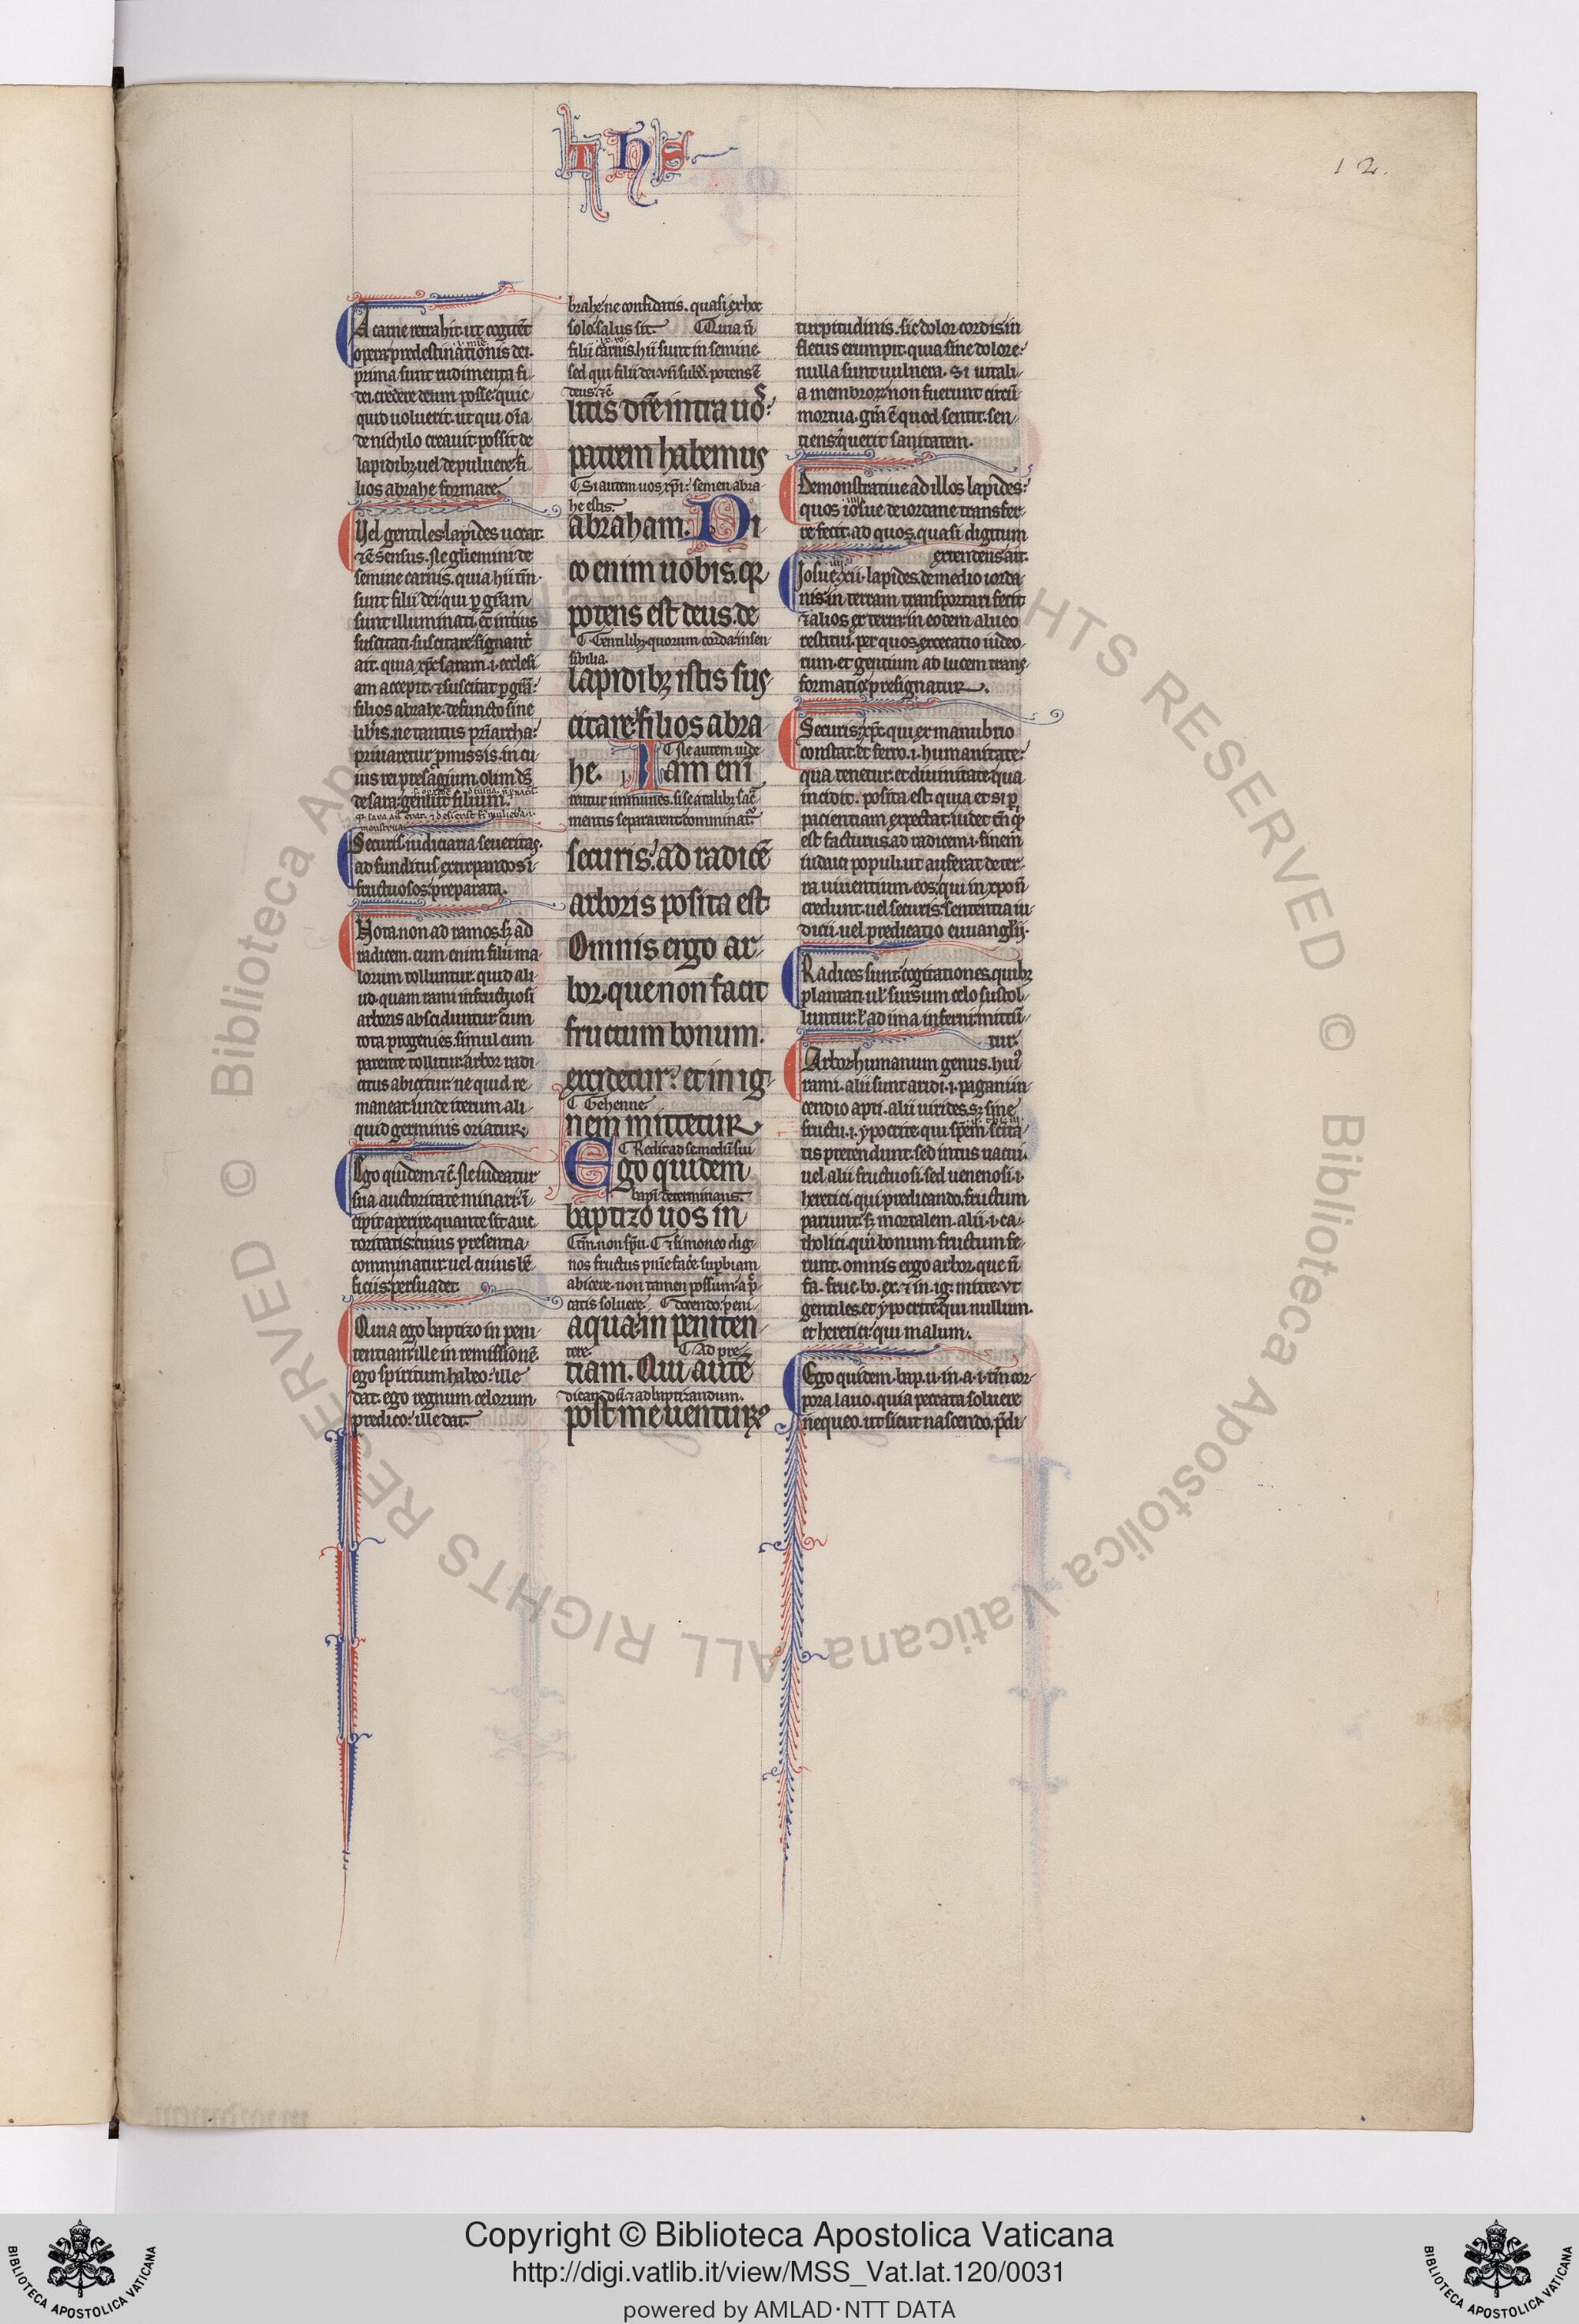 T H S
12.
A carne retrahit. ut cogitēt
opera predestinationis dei.
prima sunt rudimenta fi-
dei. credere deum posse quic-
quid uoluerit. ut qui oīa
de nichilo creauit. possit de
lapidibꝫ uel de puluere fi-
lios abrahe formare.
Vel gentiles lapides uocat.
⁊ ē sensus. Ne gliemini de
semine carnis. quia hii tm̄
sunt filii dei qui ꝑ gr̄am
sunt illuminati. et interius
suscitati. suscitare signant̄
ait. quia xp̄c saram .i. ecclesi-
am accepit. ⁊ suscitat ꝑ gr̄a:
filios abrahe. defuncto sine
lib̄is. ne tantus pr̄iarcha:
priuaretur ꝓmissis. in cu-
ius rei presagium. olim d̄s
de sara genuit filium.
Securis. iudiciaria seueritas.
ad funditus extirpandos ī-
fructuosos. preparata.
Nota non ad ramos. sꝫ ad
radicem. cum enim filii ma-
lorum tolluntur. quid ali-
ud. quam rami infructuosi
arboris absciduntur? cum
tota progenies simul cum
parente tollitur. arbor radi-
citus abicitur. ne quid re-
maneat. unde iterum ali-
quid germinis oriatur.
Ego quidem ⁊c̄. Ne uideatur
sua auctoritate minari. ī-
cipit aperire quante sit auc-
toritatis. cuius presentia
comminatur. uel cuius bn̄-
ficiis persuadet.
Quia ego baptizo in peni-
tentiam. ille in remissionē.
ego spiritum habeo: ille
dat. ego regnum celorum
predico: ille dat.
brahe. ne confidatis. quasi ex hoc
solo salus sit. Quia n̄
filii carnis. hii sunt in semine.
sed qui filii dei. potens ē
deus ⁊c̄
litis dīce intra uos:
patrem habemus
Si autem uos xp̄i: semen abra-
he estis.
abraham. Di-
co enim uobis. qꝫ
potens est deus. de
Gentilibꝫ. quorum corda insen-
sibilia.
lapidibꝫ istis sus-
citare: filios abra-
Ne autem uide-
he. Iam eni
rentur inmunes.
mentis separarent. cominat̄.
securis: ad radicē
arboris posita est.
Omnis ergo ar-
bor. que non facit
fructum bonum.
excidetur: et in ig-
Gehenne.
nem mittetur.
Ego quidem
bapt̄ determinans.
baptizo uos in
tm̄. non sp̄u. ⁊ si moneo dig-
nos fructus pnīe facere. suꝑbiam
abicere. non tamen possum a p̄c-
catis soluere. docendo peni-
aqua: in peniten-
tere. Ad pre-
tiam. Qui autē
dicandū. ⁊ ad baptizandum.
post me uenturꝰ
turpitudinis. sic dolor cordis in
fletus erumpit. quia sine dolore:
nulla sunt uulnera. Si uitali-
a membroꝝ non fuerunt circū-
mortua. gr̄m ē quod sentit. sen-
tiens querit sanitatem.
Demonstratiue ad illos lapides:
quos iosue de iordane transfer-
re fecit. ad quos. quasi digitum
extendens ait.
Iosue. xii. lapides de medio iorda-
nis in terram transportari fecit
⁊ alios ex terra in eodem alueo
restitui. per quos. excecatio iudeo-
rum. et gentium ad lucem trans-
formatio presignatur.
Securis. xp̄c qui ex manubrio
constat. et ferro .i. humanitate:
qua tenetur. et diuinitate qua
incidit. posita est. quia et si ꝑ
pacientiam expectat. uidet tn̄ qꝫ
est facturus. ad radicem .i. finem
iudaici populi. ut auferat de ter-
ra uiuentium. eos. qui in xpo n̄
credunt. uel securis. sententia iu-
dicii. uel predicatio euuanglīj.
Radices sunt cogitationes. quibꝫ
plantati. ul̄ sursum celo sustol-
luntur. ł ad ima inferni mittū-
tur.
Arbor humanum genus. huiꝰ
rami. alii sunt aridi .i. pagani in-
cendio apti. alii uirides. sꝫ sine
fructu .i. ypocrite. qui spēm scita-
tis pretendunt. sed intus uacui.
uel alii fructuosi. sed uenenosi .i.
heretici. qui predicando. fructum
pariunt. sꝫ mortalem. alii .i. ca-
tholici. qui bonum fructum fe-
runt. omnis ergo arbor. que n̄
fa. fruc. bo. ex. ⁊ in. ig. mitte. vt
gentiles. et ypocrite. qui nullum.
et heretici. qui malum.
Ego quidem. bap. u. in. a. .i. tm̄ cor-
pora lauo. quia peccata soluere
nequeo. ut sicut nascendo. p̄di-
Copyright © Biblioteca Apostolica Vaticana
http://digi.vatlib.it/view/MSS_Vat.lat.120/0031
powered by AMLAD·NTT DATA
© Biblioteca Apostolica Vaticana ALL RIGHTS RESERVED
BIBLIOTECA APOSTOLICA VATICANA
BIBLIOTECA APOSTOLICA VATICANA